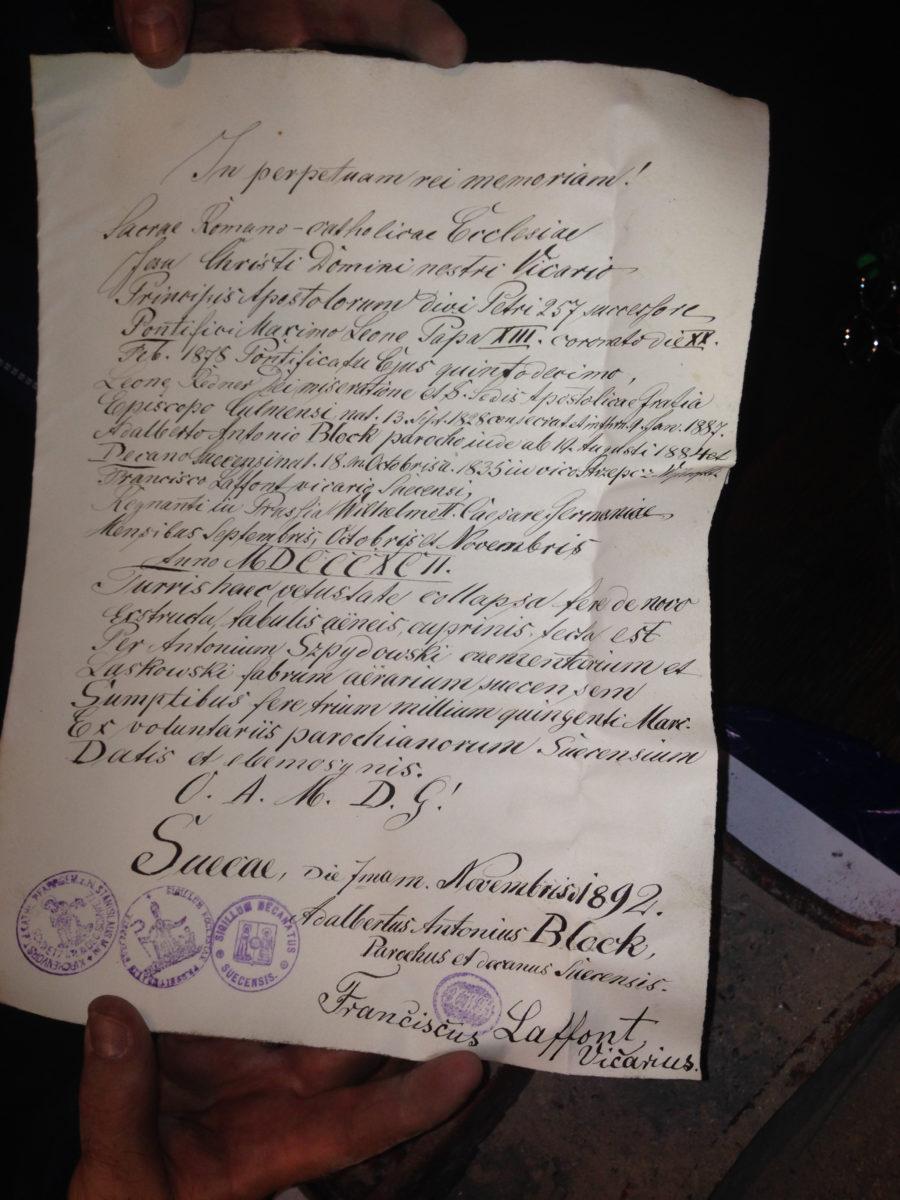 In perpetuam rei memoriam!
Sacrae Romano-catholicae Ecclesiae
Jesu Christi Domini nostri Vicario
Principis Apostolorum divi Petri 257 successore
Pontifici Maximo Leone Papa XIII. coronato die XX.
Feb. 1878 Pontificatu Ejus quinto decimo,
Leone Redner Dei miseratione et S. Sedis Apostolicae Gratia
Episcopo Culmensi nat. 13. Sept. 1828 consecrat 9. Jan. 1887.
Adalberto Antonio Block parocho inde ab 14. Augusti 1884 et
Decano Suecensi nat. 18. m. Octobris a. 1835 in vico
Francisco Laffont vicario Suecensi,
Regnanti in Prussia Wilhelmo II. Caesare Germaniae,
Mensibus Septembris, Octobris et Novembris
Anno MDCCCXCII.
Turris haec vetustate collapsa fere de novo
Exstructa, tabulis aëneis, cuprinis tecta est
Per Antonium Szpydowski caementarium et
Laskowski fabrum aërarium suecensem
Sumptibus fere trium millium quingenti Marc.
Ex voluntariis parochianorum Suecensium
Datis et elemosynis.
O. A. M. D. G!
Suecae, die 7ma m. Novembris 1892.
Adalbertus Antonius Block,
Parochus et decanus Suecensis.
Franciscus Laffont
Vicarius.
SIGILLUM DECANATUS
SUECENSIS.